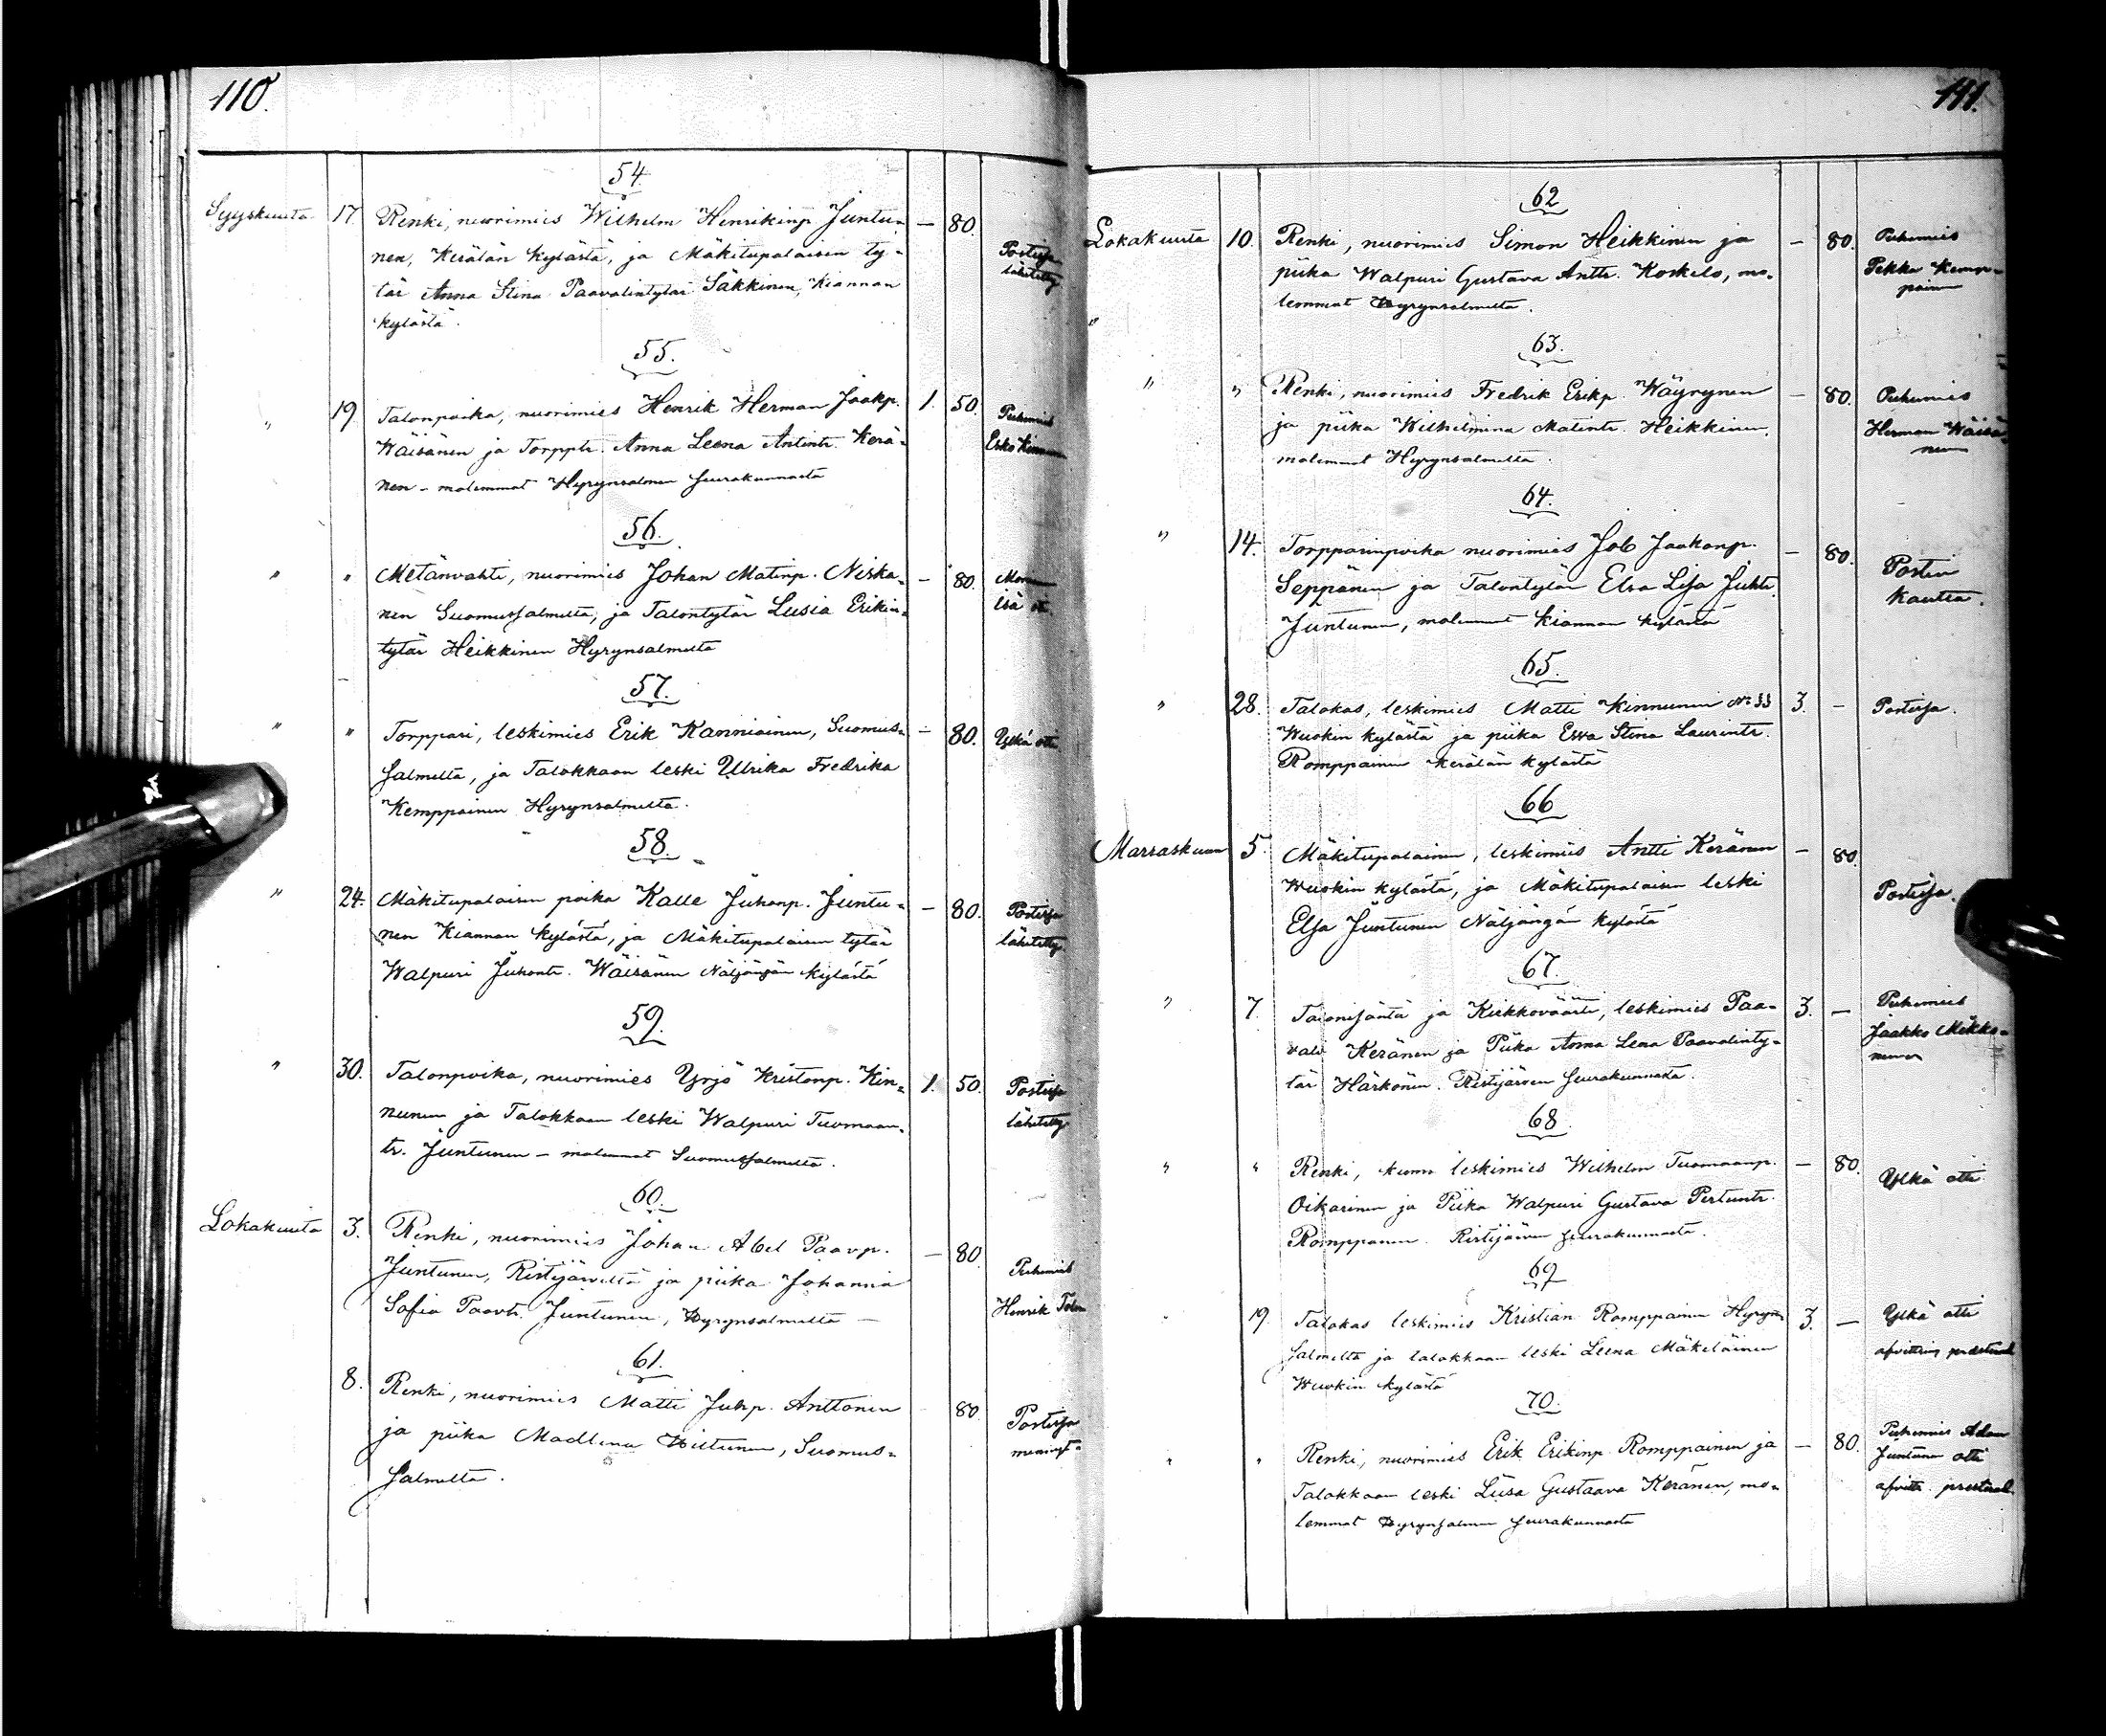 110.
54.
Syyskuuta 17. Renki, nuorimies Wilhelm Henrikinp. Juntu- — 80. Postissa
nen, Kerälän kylästä, ja Mäkitupalaisen ty- lähetetty
tär Anna Stina Paavalintytär Säkkinen, Kiannan
kylästä.
55.
" 19. Talonpoika, nuorimies Henrik Herman Jaakp. 1. 50. Puhemies
Wäisänen ja Torpptr. Anna Leena Antintr. Kerä- Esko Kinnunen
nen - molemmat Hyrynsalmen seurakunnasta
56.
" " Metänvahti, nuorimies Johan Matinp. Niska- — 80.
nen Suomussalmelta, ja Talontytär Lusia Erikin- isä
tytär Heikkinen Hyrynsalmelta
57.
" " Torppari, leskimies Erik Kanniainen, Suomus- — 80. Ylkä otti
salmelta, ja Talokkaan leski Ulrika Fredrika
Kemppainen Hyrynsalmelta.
58.
" 24. Mäkitupalaisen poika Kalle Juhonp. Juntu- — 80. Postissa
nen Kiannan kylästä, ja Mäkitupalaisen tytär lähetetty
Walpuri Juhontr. Wäisänen Näljängän kylästä
59.
" 30. Talonpoika, nuorimies Yrjö Kristonp. Kin- 1. 50. Postissa
nunen ja Talokkaan leski Walpuri Tuomaan- lähetetty
tr. Juntunen - molemmat Suomussalmelta.
60.
Lokakuuta 3. Renki, nuorimies Johan Abel Paavp. — 80. Puhemies
Juntunen, Ristijärveltä ja piika Johanna Henrik
Sofia Paavtr. Juntunen, Hyrynsalmelta —
61.
8. Renki, nuorimies Matti Juhp. Anttonen 80. Postissa
ja piika Madlena Hiltunen, Suomus-
salmelta.
111.
62
Lokakuuta 10. Renki, nuorimies Simon Heikkinen ja — 80. Puhemies
piika Walpuri Gustava Anttr. Koskelo, mo- Pekka Kemp-
lemmat Hyrynsalmelta. painen
"
63.
" " Renki, nuorimies Fredrik Erikp. Wäyrynen — 80. Puhemies
ja piika Wilhelmina Matintr. Heikkinen, Herman Wäisä-
molemmat Hyrynsalmelta. nen
64.
" 14. Torpparinpoika nuorimies Job Jaakonp. — 80. Postin
Seppänen ja Talontytär Elsa Lisa Juhtr. kautta.
Juntunen, molemmat Kiannan kylästä
65.
" 28. Talokas, leskimies Matti Kinnunen No 33 3. — Postissa.
Wuokin kylästä ja piika Eeva Stina Laurintr.
Romppainen Kerälän kylästä
66
Marraskuun 5. Mäkitupalainen, leskimies Antti Keränen — 80.
Wuokin kylästä, ja Mäkitupalaisen leski Postissa.
Elsa Juntunen Näljängän kylästä
67.
" 7. Talonisäntä ja Kirkkoväärti, leskimies Paa- 3. — Puhemies
vali Keränen ja Piika Anna Leena Paavalinty- Jaakko Mikko-
tär Härkönen. Ristijärven seurakunnasta. nen
68
" " Renki, leskimies Wilhelm Tuomaanp. — 80. Ylkä otti
Oikarinen ja Piika Walpuri Gustava Pertuntr.
Romppanen. Ristijärven seurakunnasta.
69
19. Talokas leskimies Kristian Romppainen Hyryn- 3. — Ylkä otti
salmelta ja talokkaan leski Leena Mäkeläinen
Wuokin kylästä
70.
" " Renki, nuorimies Erik Erikinp. Romppainen ja — 80. Puhemies Adam
Talokkaan leski Liisa Gustaava Keränen, mo- Juntunen otti
lemmat Hyrynsalmen seurakunnasta